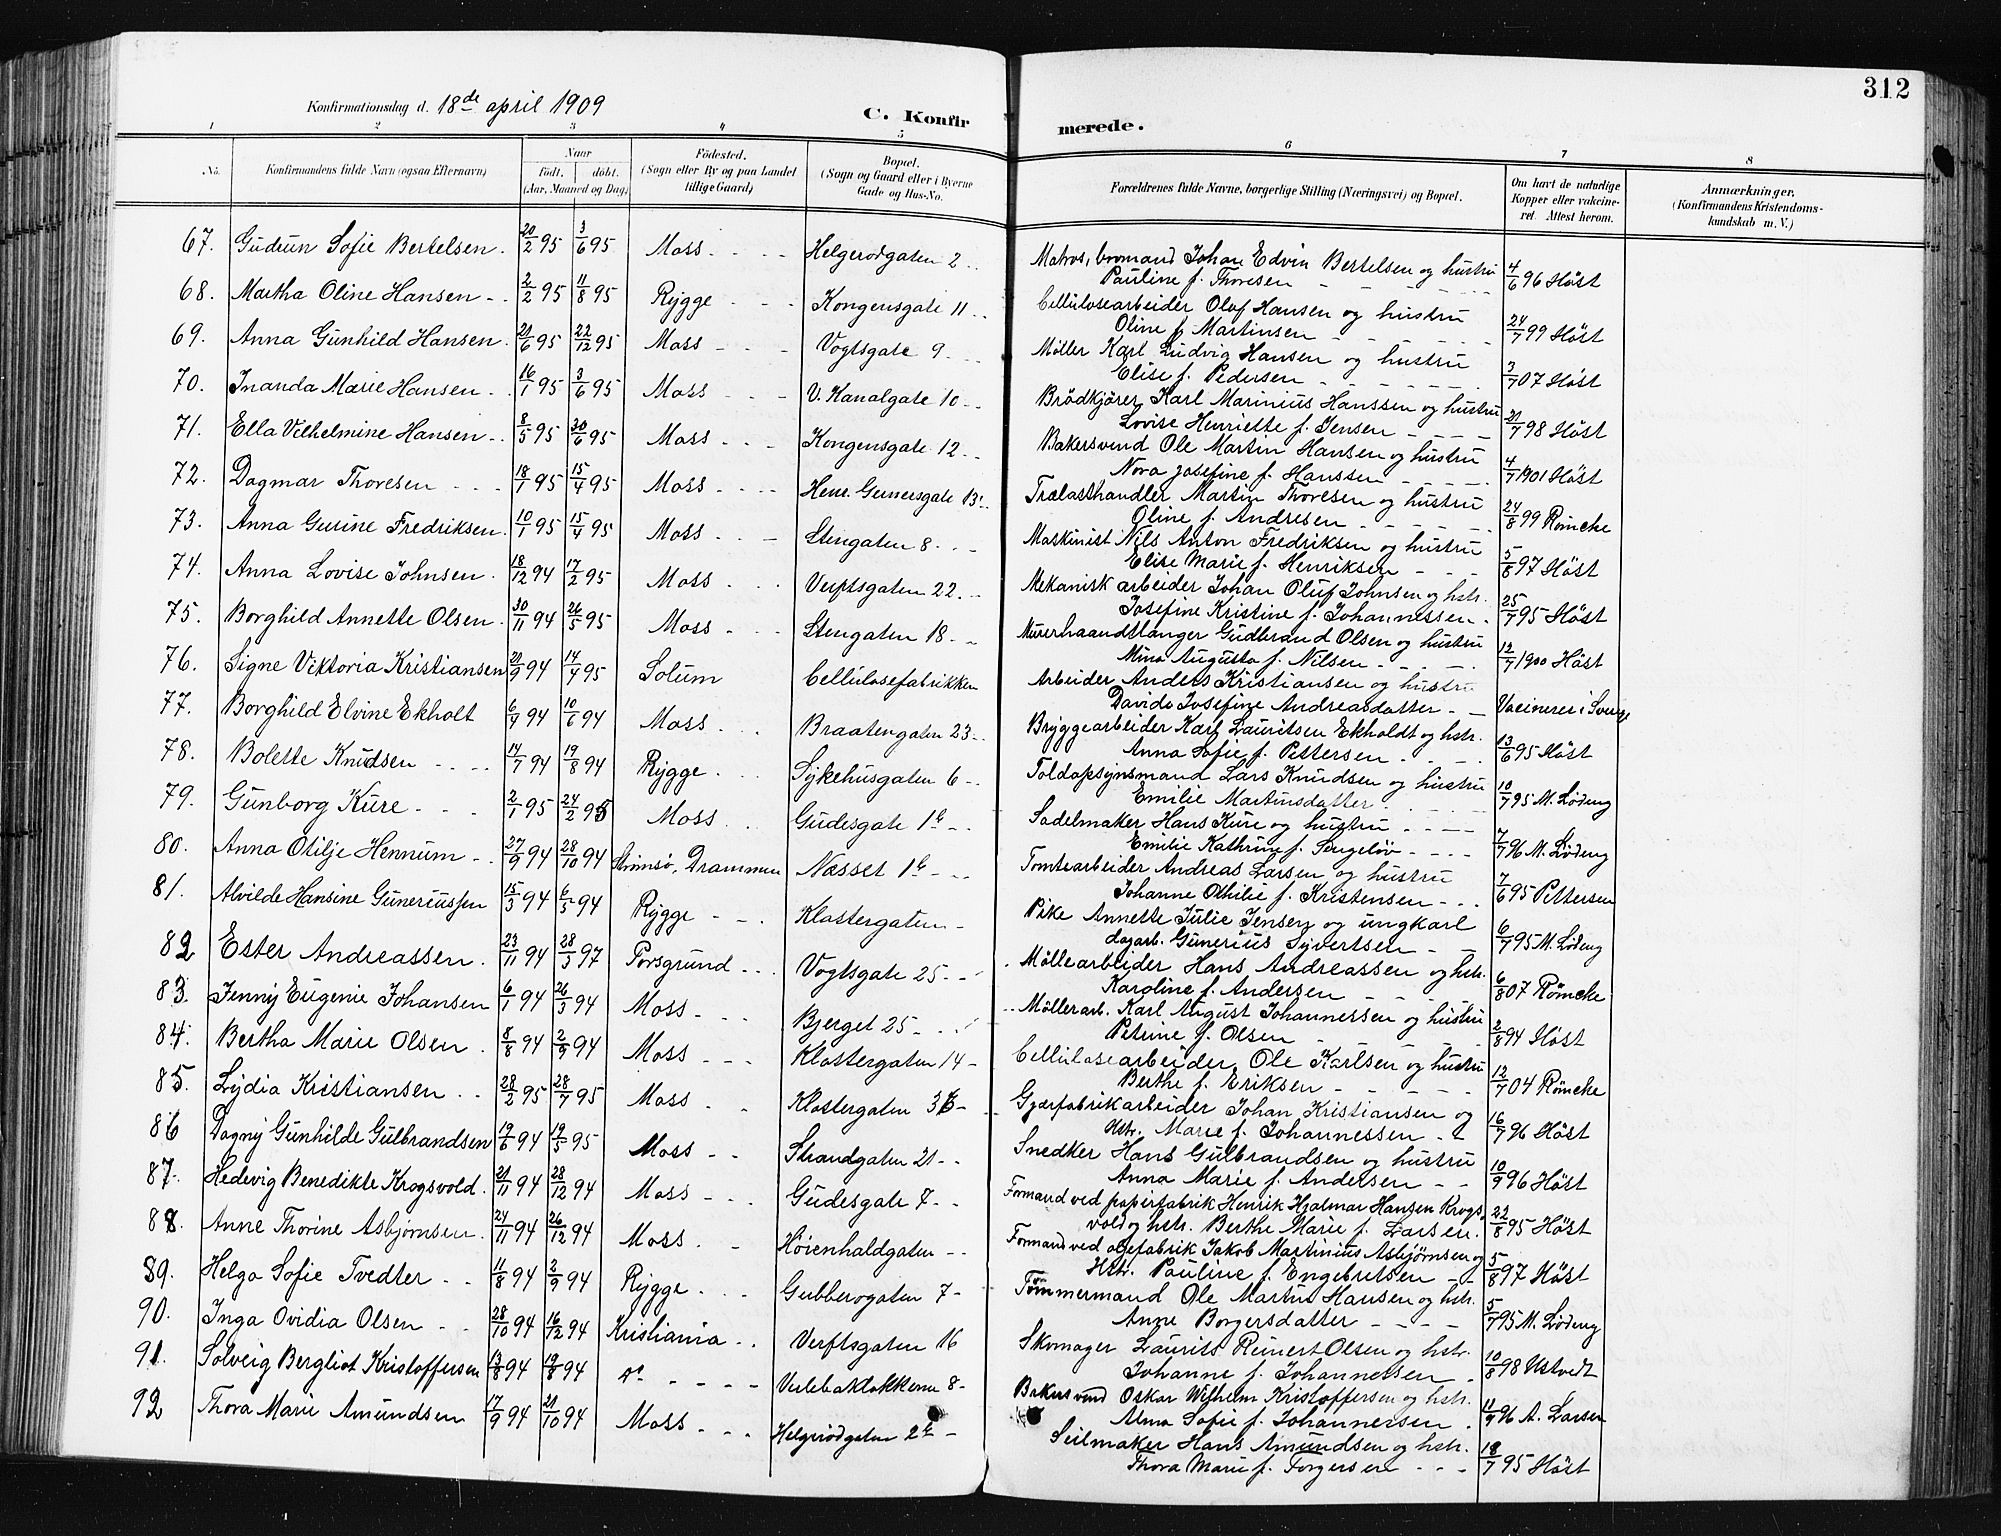 312
Konfirmationsdag d. 18de april 1909
C. Konfirmerede.
1 2 3 4 5 6 7 8
No.
Konfirmandens fulde Navn (ogsaa Efternavn)
Naar
født. døbt.
(Aar, Maaned og Dag)
Fødested.
(Sogn eller By og paa Landet tillige Gaard)
Bopæl.
(Sogn og Gaard eller i Byerne Gade og Hus-No.
Forældrenes fulde Navne, borgerlige Stilling (Næringsvei) og Bopæl.
Om havt de naturlige Kopper eller vakcineret. Attest herom.
Anmærkninger.
(Konfirmandens Kristendomskundskab m. V.)
67. Gudrun Sofie Bertelsen 20/2 95 3/6 95 Moss Helgerødgaten 2 Matros, bromand Johan Edvin Bertelsen og hustru
Pauline f. Thoresen 4/6 96 Høst
68. Martha Oline Hansen 2/2 95 11/8 95 Rygge Kongensgate 11 Cellulosearbeider Olaf Hansen og hustru
Oline f. Martinsen 24/7 99 Høst
69. Anna Gunhild Hansen 21/6 95 22/12 95 Moss Vogtsgate 9 Møller Karl Ludvig Hansen og hustru
Elise f. Pedersen 3/7 07 Høst
70. Inanda Marie Hansen 16/1 95 3/6 95 Moss V. Kanalgate 10 Brødkjører Karl Marinius Hanssen og hustru
Lovise Henriette f. Jensen 21/7 98 Høst
71. Ella Vilhelmine Hansen 8/5 95 30/6 95 Moss Kongensgate 12 Bakersvend Ole Martin Hansen og hustru
Nora Josefine f. Hanssen 4/7 1901 Høst
72. Dagmar Thoresen 18/1 95 15/4 95 Moss Henr. Gernersgate 13 Trælasthandler Martin Thoresen og hustru
Oline f. Andresen 24/8 99 Rømcke
73. Anna Gurine Fredriksen 10/1 95 15/4 95 Moss Stengaten 8 Maskinist Nils Anton Fredriksen og hustru
Elise Marie f. Henriksen 5/8 97 Høst
74. Anna Lovise Johnsen 18/12 94 17/2 95 Moss Verftsgaten 22 Mekanisk arbeider Johan Oluf Johnsen og hstr.
Josefine Kristine f. Johannessen 25/7 95 Høst
75. Borghild Annette Olsen 30/11 94 26/5 95 Moss Stengaten 18 Murerhaandtlanger Gudbrand Olsen og hustru
Mina Augusta f. Nilsen 12/7 1900 Høst
76. Signe Viktoria Kristiansen 20/9 94 14/4 95 Solum Cellulosefabrikken Arbeider Anders Kristiansen og hustru
Davida Josefine Andreasdatter Vacineret i Sverge
77. Borghild Elvine Ekholt 6/9 94 10/6 94 Moss Braatengaten 23 Bryggearbeider Karl Lauritsen Ekholdt og hstr.
Anna Sofie f. Pettersen 13/6 95 Høst
78. Bolette Knudsen 14/7 94 19/8 94 Rygge Sykehusgaten 6 Toldopsynsmand Lars Knudsen og hustru
Emilie Martinsdatter 10/7 95 M. Lødeng
79. Gunborg Kure 2/1 95 24/2 95 Moss Gudesgate 1b Sadelmaker Hans Kure og hustru
Emilie Kathrine f. Sengeløv 7/7 96 M. Lødeng
80. Anna Otilje Hennum 27/9 94 28/10 94 Strømsø, Drammen Næsset 1b Tomtearbeider Andreas Larsen og hustru
Johanne Othilie f. Kristensen 7/6 95 Pettersen
81. Alvilde Hansine Guneriussen 15/3 94 6/5 94 Rygge Klostergaten Pike Annette Julie Jensen og ungkarl
dagarb. Gunerius Syvertsen 6/7 95 M. Lødeng
82 Ester Andreassen 23/11 94 28/3 97 Porsgrund Vogtsgate 25 Møllearbeider Hans Andreassen og hstr.
Karoline f. Andersen 6/8 07 Rømcke
83. Jenny Eugenie Johansen 6/1 94 26/3 94 Moss Bjerget 25 Møllerarb. Karl August Johannessen og hustru
Petrine f. Olsen 2/8 94 Høst
84. Bertha Marie Olsen 8/8 94 2/9 94 Moss Klostergaten 14 Cellulosearbeider Ole Karlsen og hustru
Berthe f. Eriksen 12/7 04 Rømcke
85. Lydia Kristiansen 28/2 95 28/7 95 Moss Klostergaten 36 Gjærfabrikarbeider Johan Kristiansen og
Hstr. Marie f. Johannessen 16/7 96 Høst
86 Dagny Gunhilde Gulbrandsen 19/6 94 19/5 95 Moss Strandgaten 21 Snedker Hans Gulbrandsen og hustru
Anna Marie f. Andersen 10/9 96 Høst
87. Hedevig Benedikte Krogsvold 21/11 94 28/12 94 Moss Gudesgate 7 Formand ved papirfabrik Henrik Hjalmar Hansen Krogsvold og hstr. Berthe Marie f. Larsen 22/8 95 Høst
88. Anne Thorine Asbjørnsen 24/11 94 26/12 94 Moss Høienhaldgaten Formand ved oljefabrik Jakob Martinius Asbjørnsen og
Hstr. Pauline f. Engebretsen 5/8 97 Høst
89. Helga Sofie Tvedter 11/8 94 2/9 94 Rygge Gubberogaten 7 Tømmermand Ole Martin Hansen og hstr.
Anne Borgersdatter 5/7 95 M. Lødeng
90. Inga Ovidia Olsen 28/10 94 16/12 94 Kristiania Verftsgaten 16 Skomager Laurits Reinert Olsen og hstr.
Johanne f. Johannessen 10/8 98 Ustvedt
91. Solveig Bergliot Kristoffersen 13/8 94 19/8 94 do Verlebakløkkerne 8 Bakersvend Oskar Wilhelm Kristoffersen og hstr.
Alma Sofie f. Johannessen 11/9 96 A. Larsen
92 Thora Marie Amundsen 17/9 94 21/10 94 Moss Helgerødgaten 2b Seilmaker Hans Amundsen og hstr.
Thora Marie f. Torgersen 18/7 95 Høst